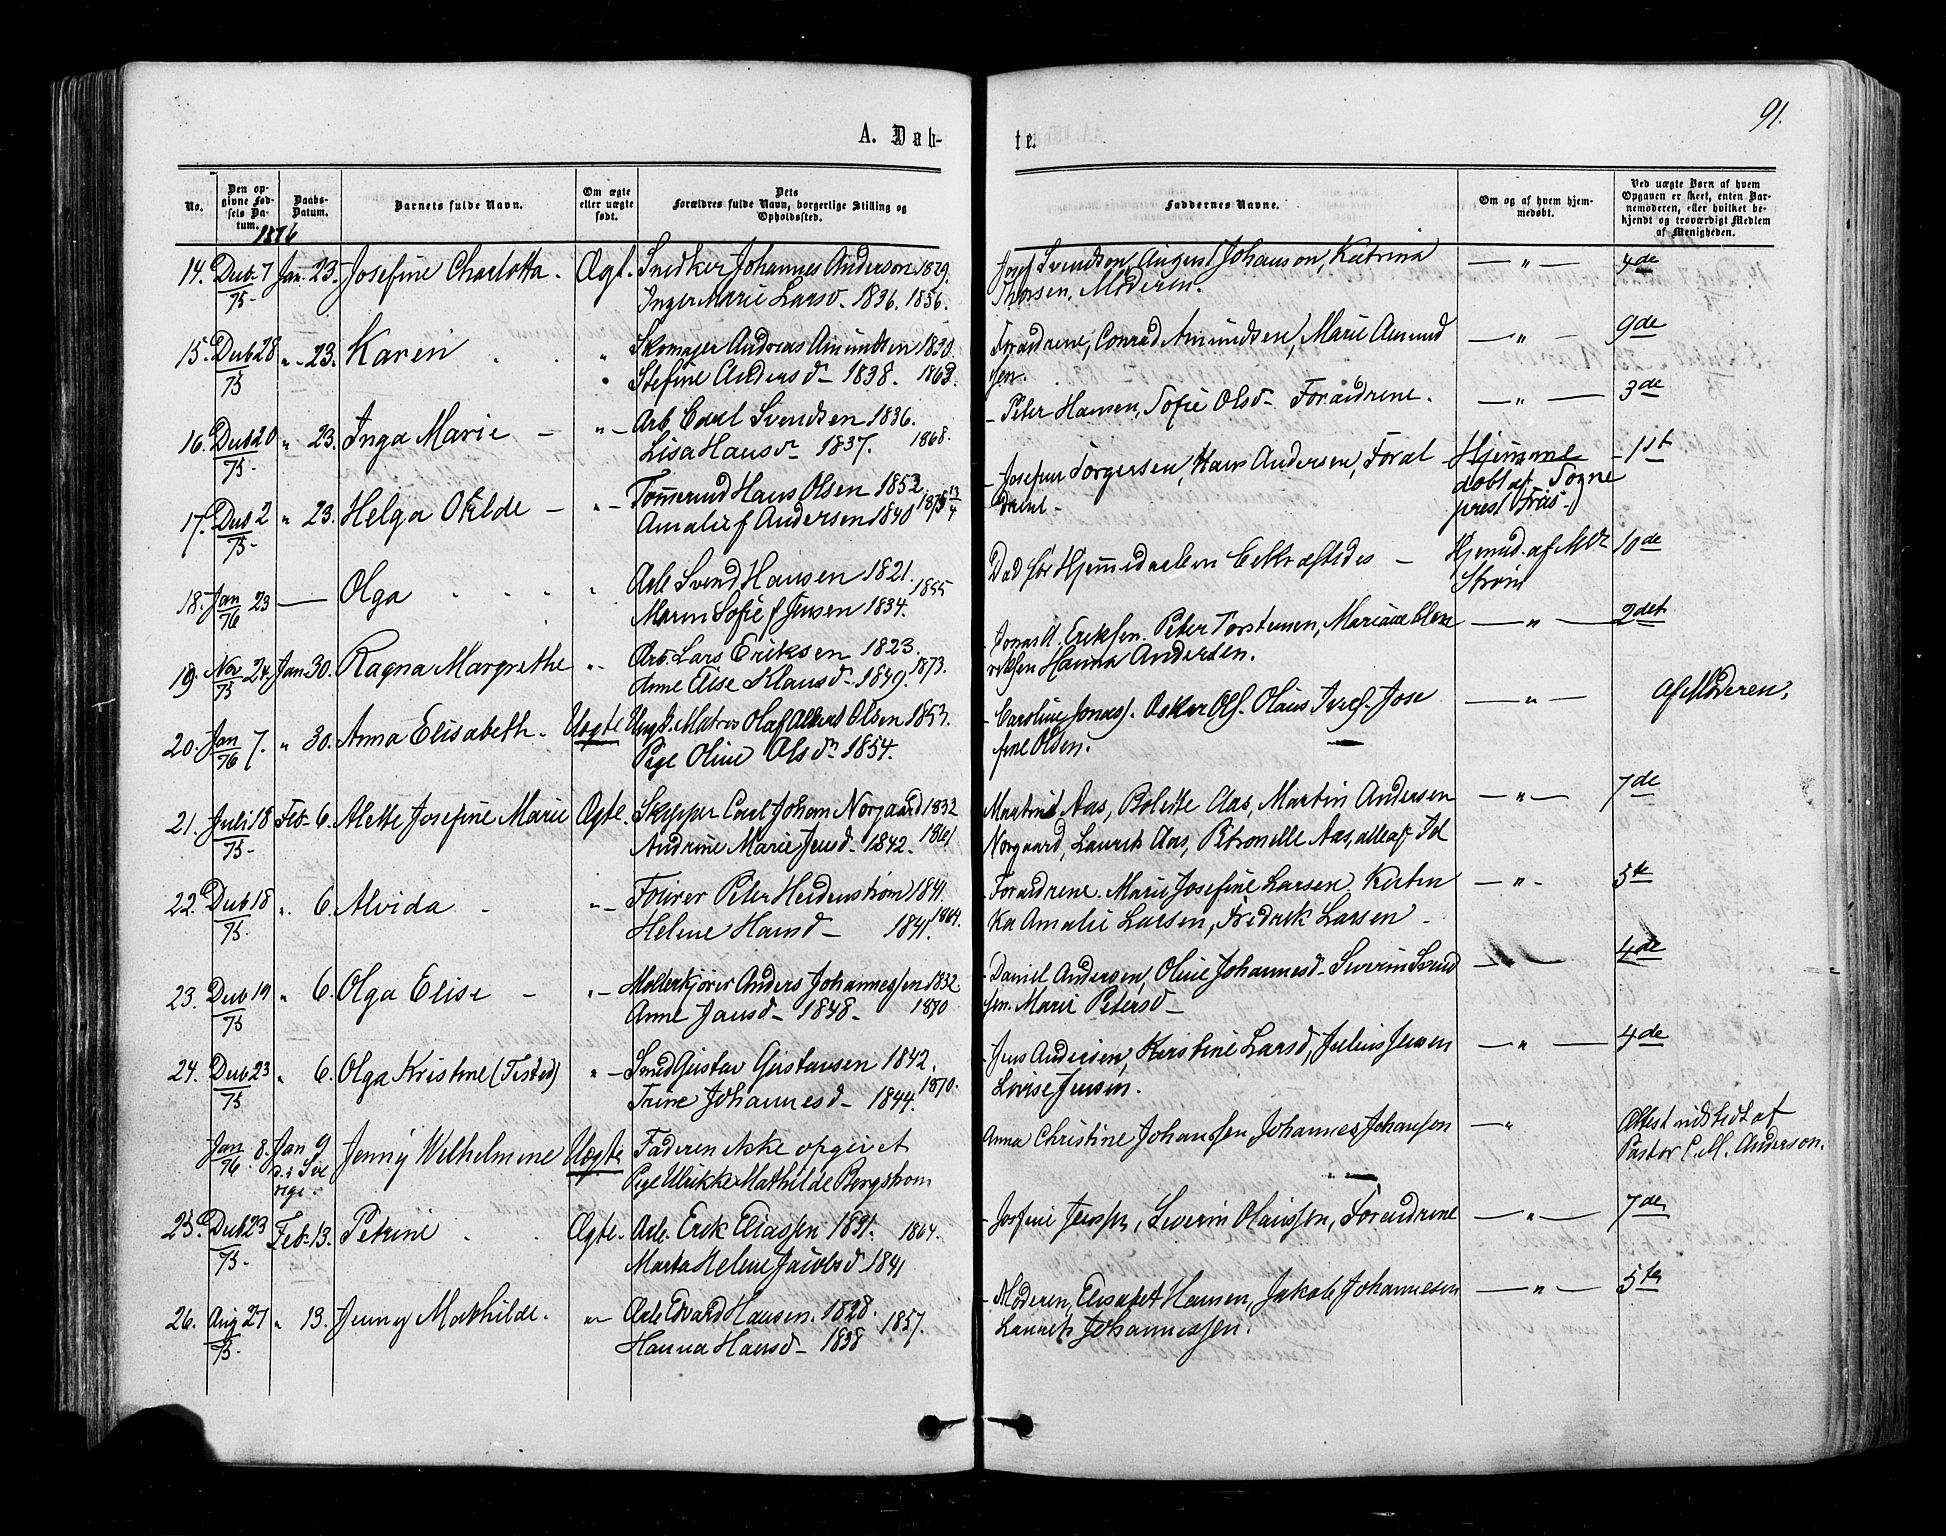 91.
A. Døb-
te.
No.
Den opgivne Fødsels Datum.
Daabs-Datum.
Barnets fulde Navn.
Om ægte eller uægte født.
Dets Forældres fulde Navn, borgerlige Stilling og Opholdssted.
Faddernes Navne.
Om og af hvem hjemmedøbt.
Ved uægte Børn af hvem Opgaven er skeet, enten Barnemoderen, eller hvilket bekjendt og troværdigt Medlem af Menigheden.
1876
14. Decb 7 Jan 23. Josefine Charlotta. Ægt. Snedker Johannes Anderson 1829. Josef Svendson, August Johanson, Katrina — " — 4de
75. Inger Marie Larsd. 1836. 1856. Thorsen, Moderen.
15. Decb 28 " 23. Karen " Skomager Andreas Amundsen 1830. Forældrene, Conrad Amundsen, Marie Amund — " — 9de
75 Stefine Andersd — 1838. 1863. sen.
16. Decb 20 " 23. Inga Marie — " — Arb. Carl Svendsen 1836. Peter Hansen, Sofie Olsd — Forældrene. — " — 3de
75. Lisa Hansd 1837. 1868.
17. Decb 2 " 23. Helga Otilde — " — Tømmermd Hans Olsen 1852 Torgersen, Hans Andersen, Foræl Hjemme — 1st
75 — Amalie f Andersen 1840 1875 13/4 drene. døbt af Sogneprest
18. Jan 23 — Olga " Arb. Svend Hansen 1821. Død før Hjemmedaaben bekræftedes — Hjemmd. af Mdr 10de
76 Maren Sofie f Jensen 1834. 1855 Strøm
19. Nov 24. Jan 30. Ragna Margrethe " Arb. Lars Eriksen 1823. Jonas A. Eriksen. Peter Torstensen, — " — 2det
75 Anne Elise Klausd — 1849. 1873. Hanna Andersen.
20. Jan 7. " 30. Anna Elisabeth. Uægte Ungk. Matros Olaf Albert Olsen 1853. Caroline Jonass. Oskar Ols. Olaus Josefs. Jose — " — Af Moderen.
76 Pige Oline Olsd 1854. fine Olsen.
21. Juli 18 Feb. 6. Alette Josefine Marie Ægte. Skipper Carl Johan Norgaard 1832 Aas, Bolette Aas, Martin Andersen — " — 7de
75. Andrine Marie Jensd — 1842. 1861 Norgaard, Laurits Aas, Petronelle Aas, alle af Id
22. Decb 18 " 6. Alvida " — Peter Heidenstrøm 1841. Forældrene. Marie Josefine Larsen — " — 5te
75. Helene Hansd — 1841. 1864. Amalie Larsen, Fredrik Larsen —
23. Decb 19 " 6. Olga Elise — " — Møllerkjører Anders Johannessen 1832 Daniel Andersen, Oline Johannesd — Severin Svend — 4de
75 Anne Jansd — 1848 — 1870 sen. Marie Petersd —
24. Decb 23 " 6. Olga Kristine (Tisted) " — Smed Gustav Gustavsen 1842. Jens Andersen, Kerstine Larsd, Julius Jensen — " — 4de
75 Trine Johannesd — 1844. 1870. Lovise Jensen.
Jan 8. Jan 9 Jenny Wilhelmine Uægte Faderen ikke opgivet Anna Christine Johansen, Johannes Johansen — " Attest af
76. Sverige. Pige Ulrikke Mathilde Bergstrøm Pastor C. M. Anderson.
25. Decb 23 Feb. 13. Petrine Ægte. Arb. Erik Eliassen 1831. 1864. Josefine Jensen, Severin Olaussen, Forældrene — " — 7de
75. Marta Helene Jacobsd 1841
26. Aug 27 " 13. Jenny Mathilde. " Arb. Edvard Hansen. 1828. Moderen, Elisabet Hansen, Jakob Johannesen — " — 5te
75. Hanna Hansd — 1838 1857. Laurits Johannessen.